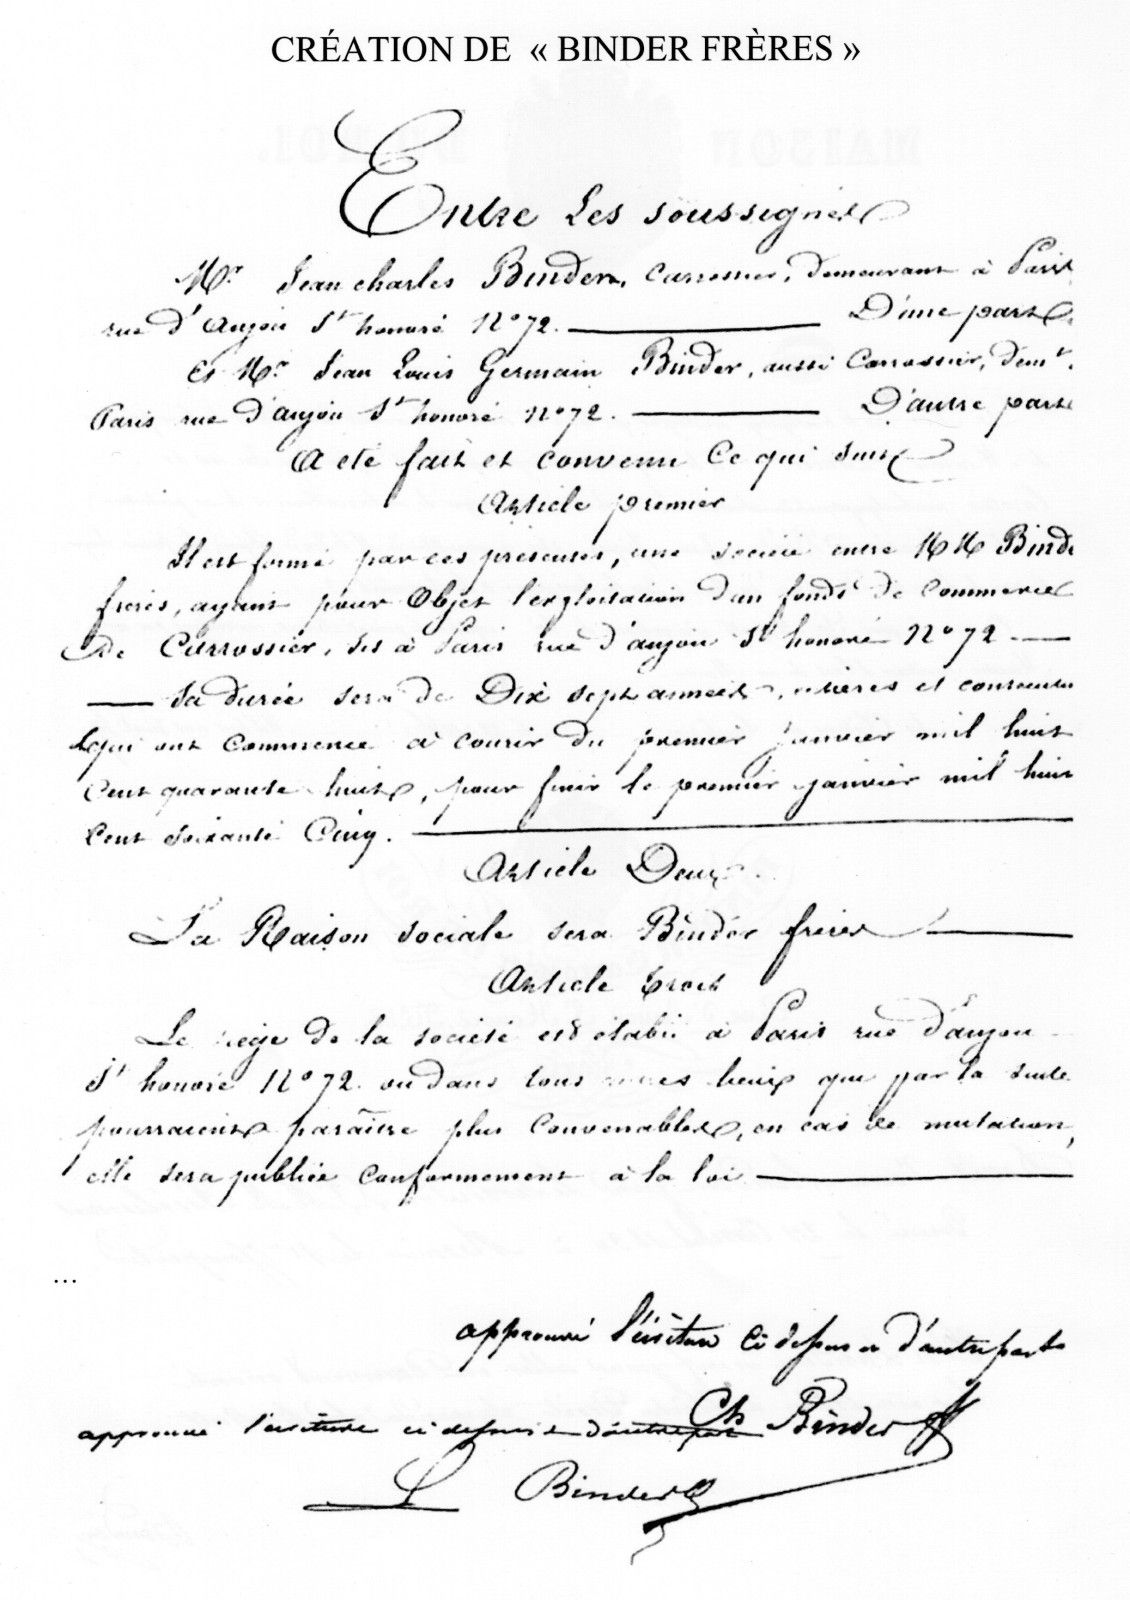 CRÉATION DE « BINDER FRÈRES »
Entre Les soussignés
Mr. Jean charles Binder, Carrossier, demeurant à Paris
rue d'Anjou St honoré No 72. D'une part,
Et Mr. Jean Louis Germain Binder, aussi Carrossier, demt.
Paris rue d'anjou St honoré No 72. D'autre part
A été fait et convenu Ce qui suit
Article premier
Il est formé par ces présentes, une société entre MM Binde
frères, ayant pour Objet l'exploitation d'un fonds de Commerce
de Carrossier, sis à Paris rue d'anjou St honoré No 72
Sa durée sera de Dix sept années, entières et consecutiv
qui ont commencé à courir du premier janvier mil huit
Cent quarante huit, pour finir le premier janvier mil huit
Cent soixante Cinq.
Article Deux.
La Raison sociale sera Binder frères
Article trois
Le siège de la société est établi à Paris rue d'anjou
St honoré No 72 ou dans tous autres lieux que par la suite
pourraient paraître plus Convenables, en cas de mutation,
elle sera publiée conformement à la loi
...
approuvé l'écriture ci dessus et d'autre part
approuvé l'écriture ci dessus et d'autre part Ch Binder
L Binder